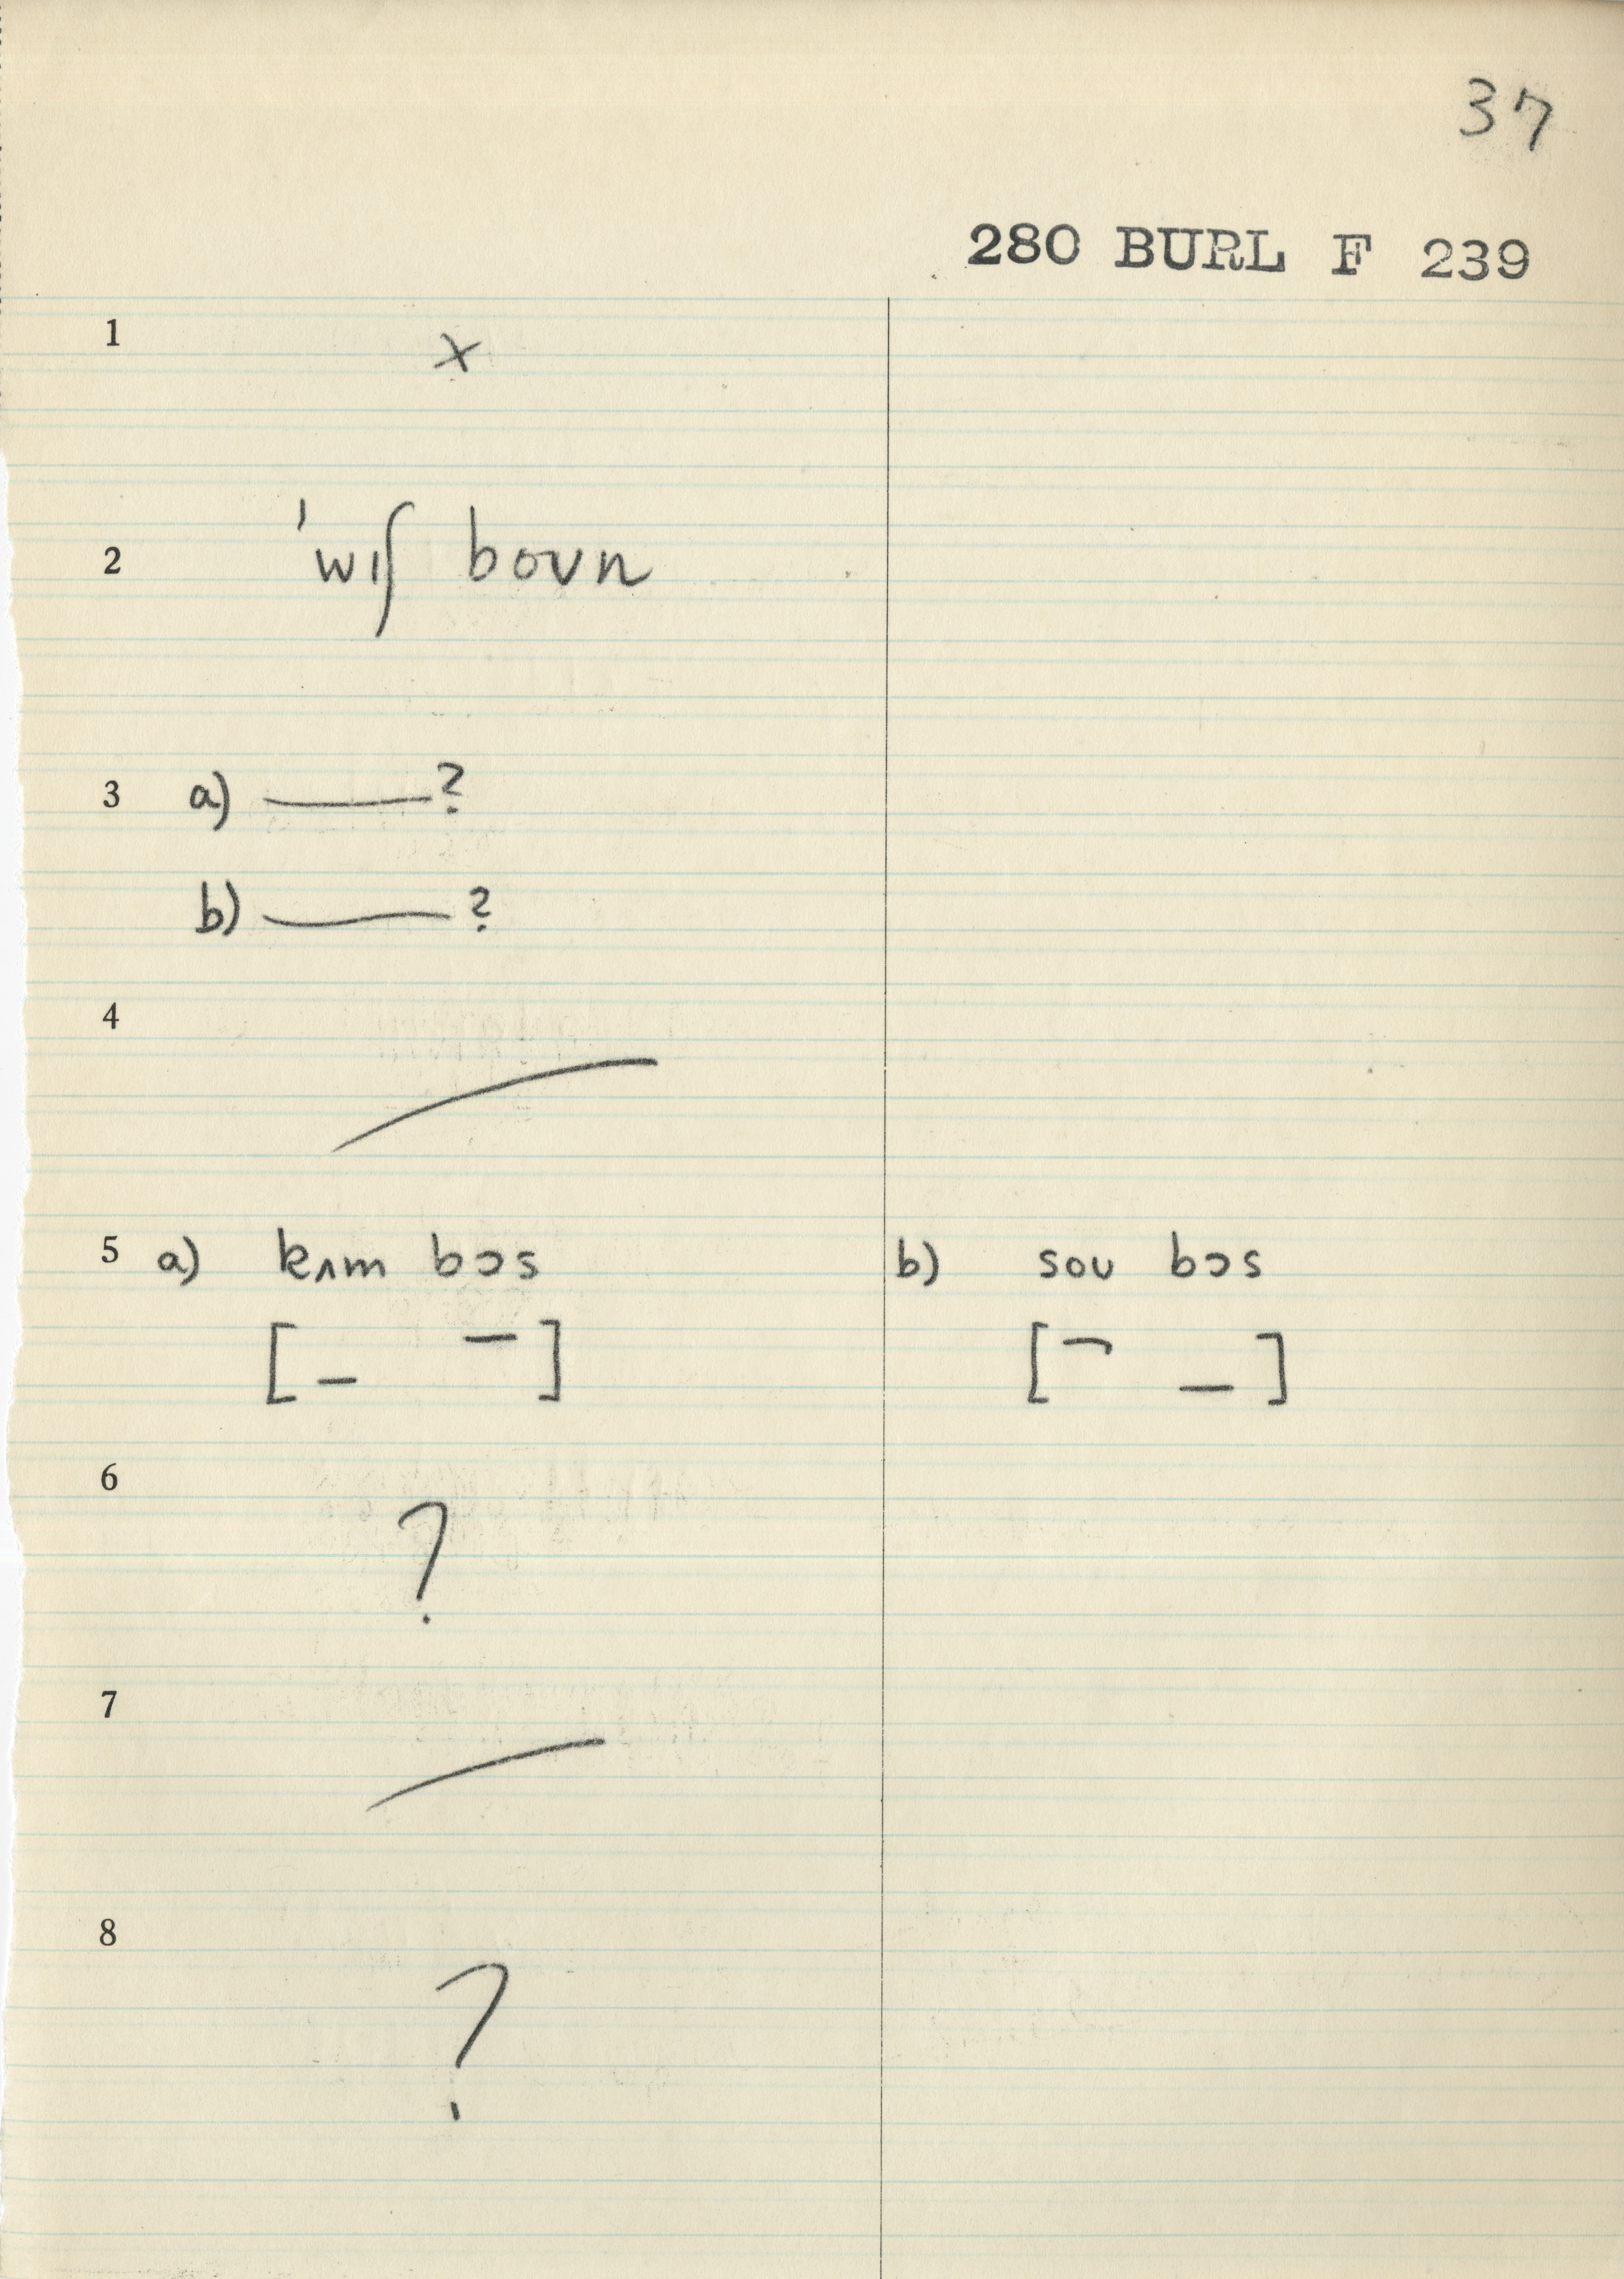 37
280 BURL F 239
1 x
2 ˈwɪʃ boʊn
3 a) ——?
b) ——?
4
5 a) kʌm bɔs b) soʊ bɔs
[_ ¯] [¯ _]
6 ?
7
8 ?